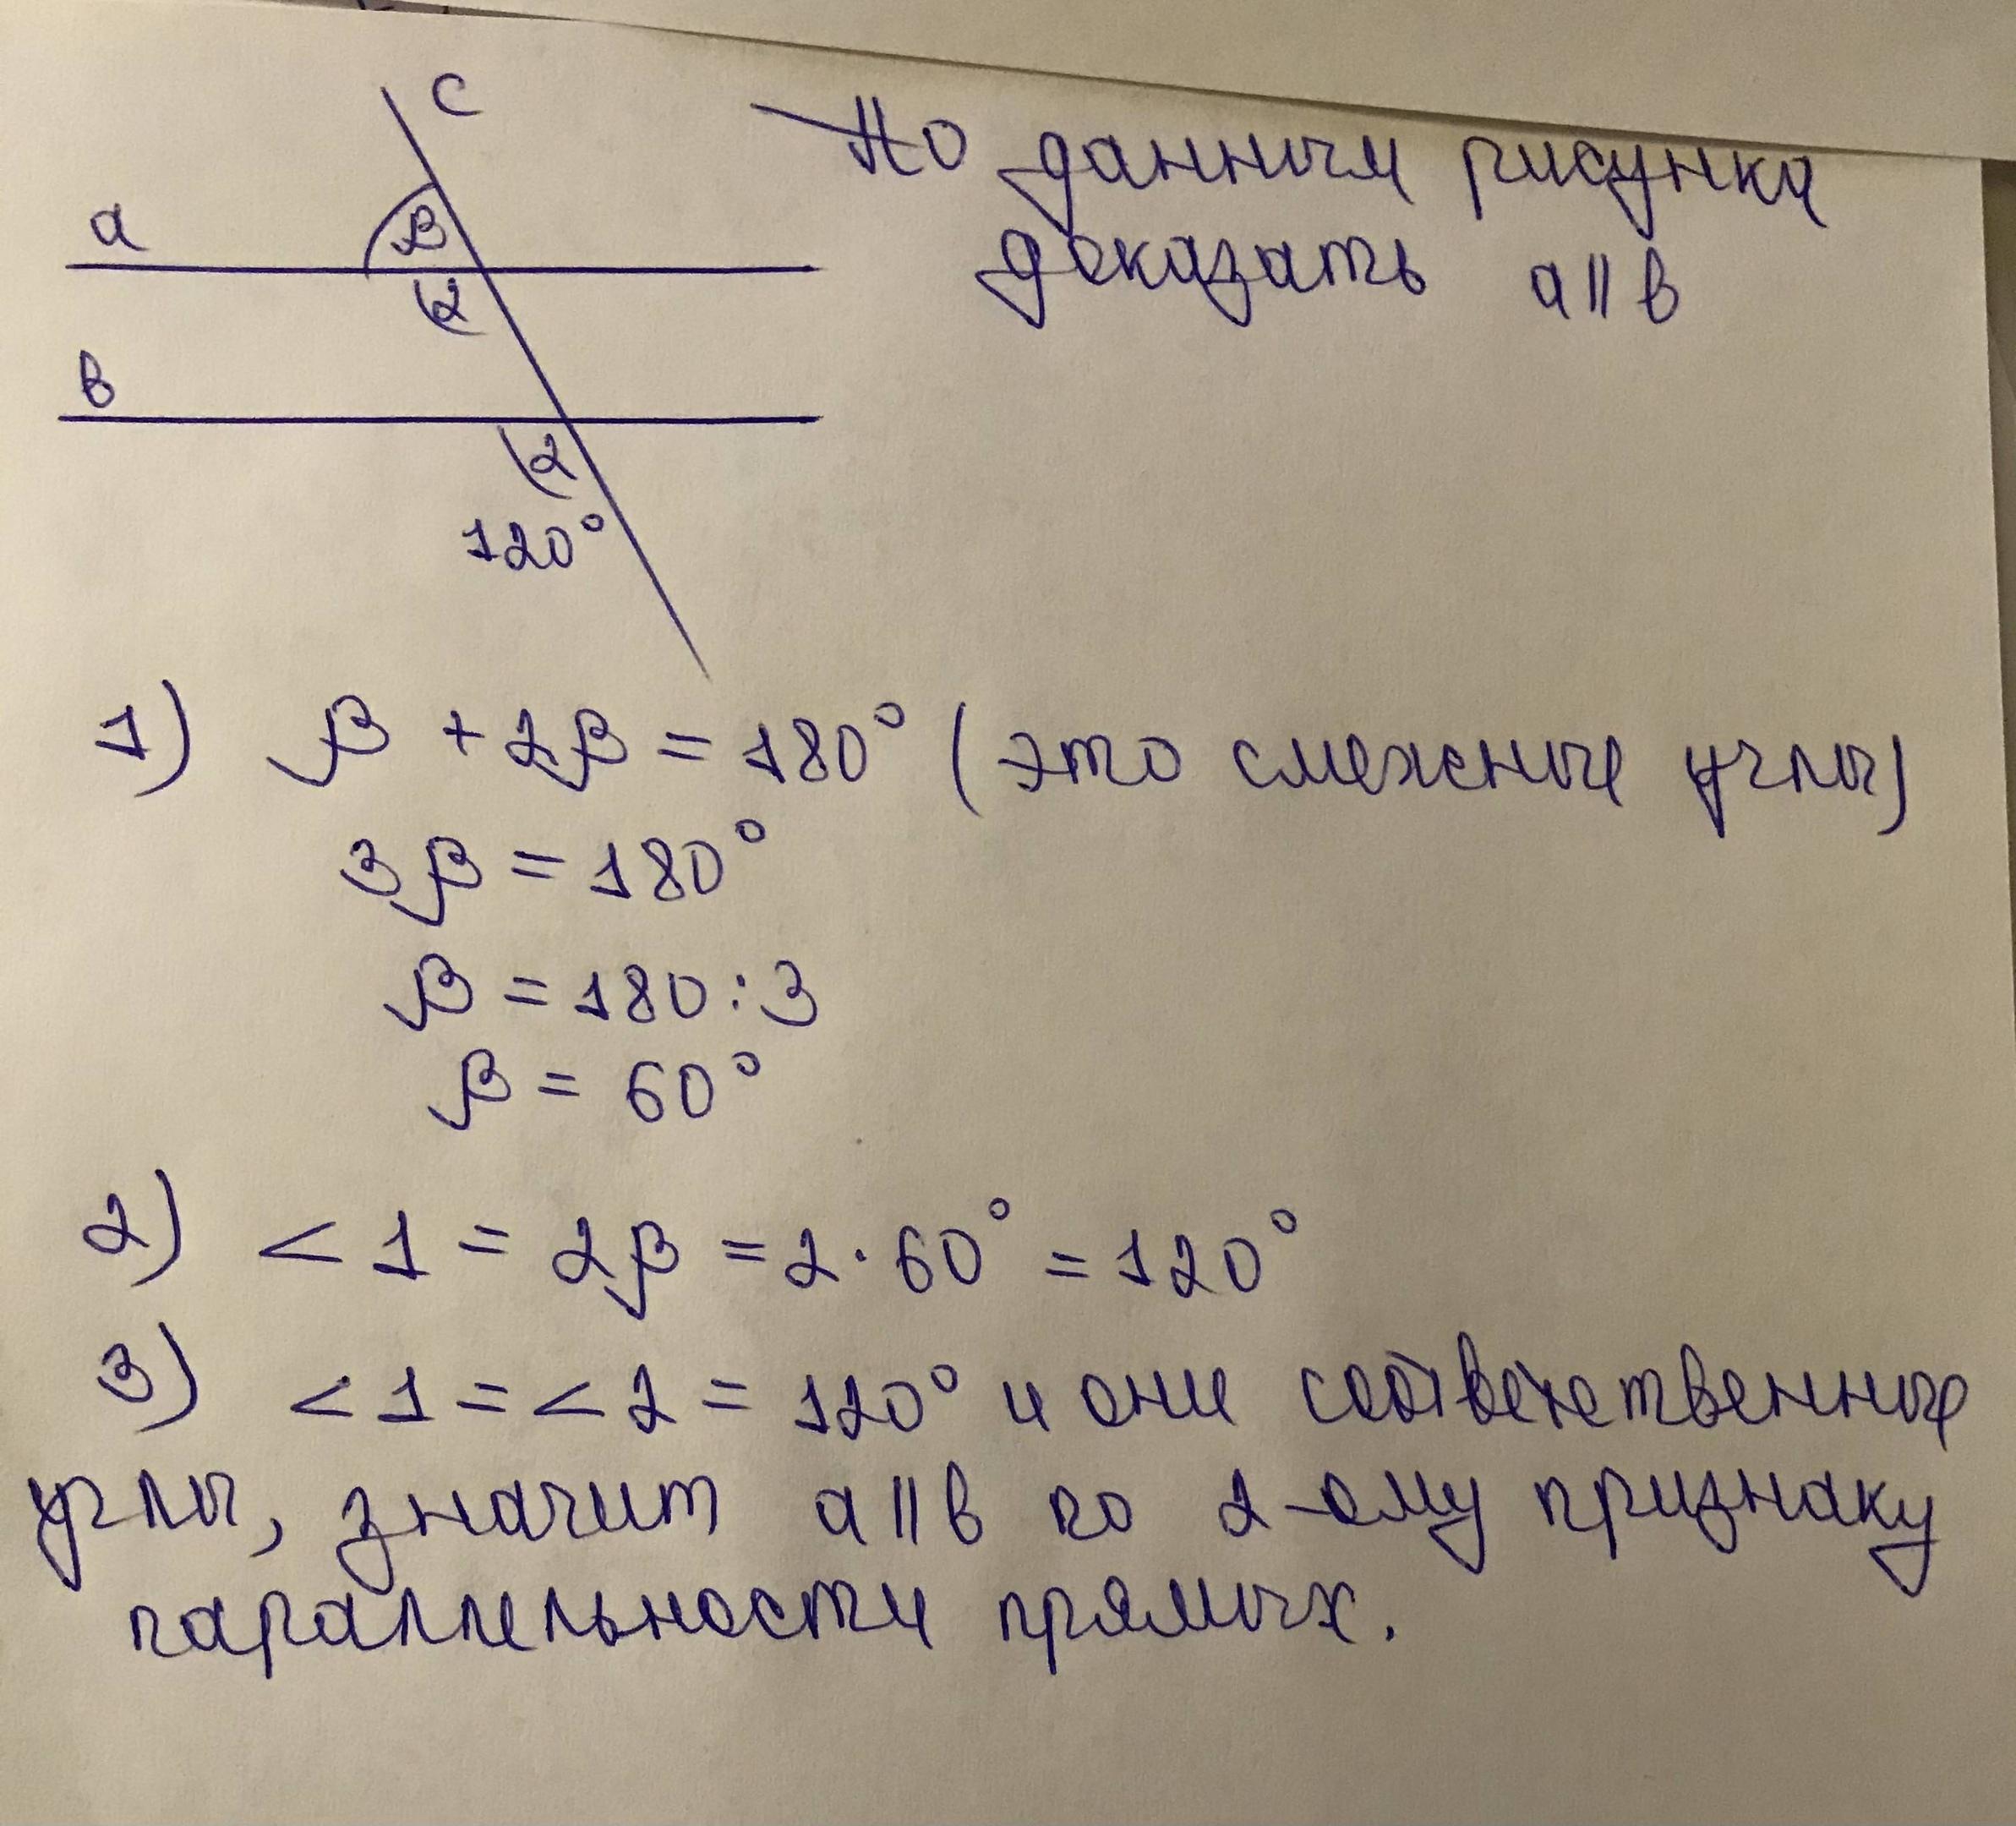 c
По данным рисунка
a β
доказать a||b
2
b
2
120°
1) β + 2β = 180° (это смежные углы)
3β = 180°
β = 180:3
β = 60°
2) <1 = 2β = 2·60° = 120°
3) <1 = <2 = 120° и они соответственные
углы, значит a||b по 2-ому признаку
параллельности прямых.